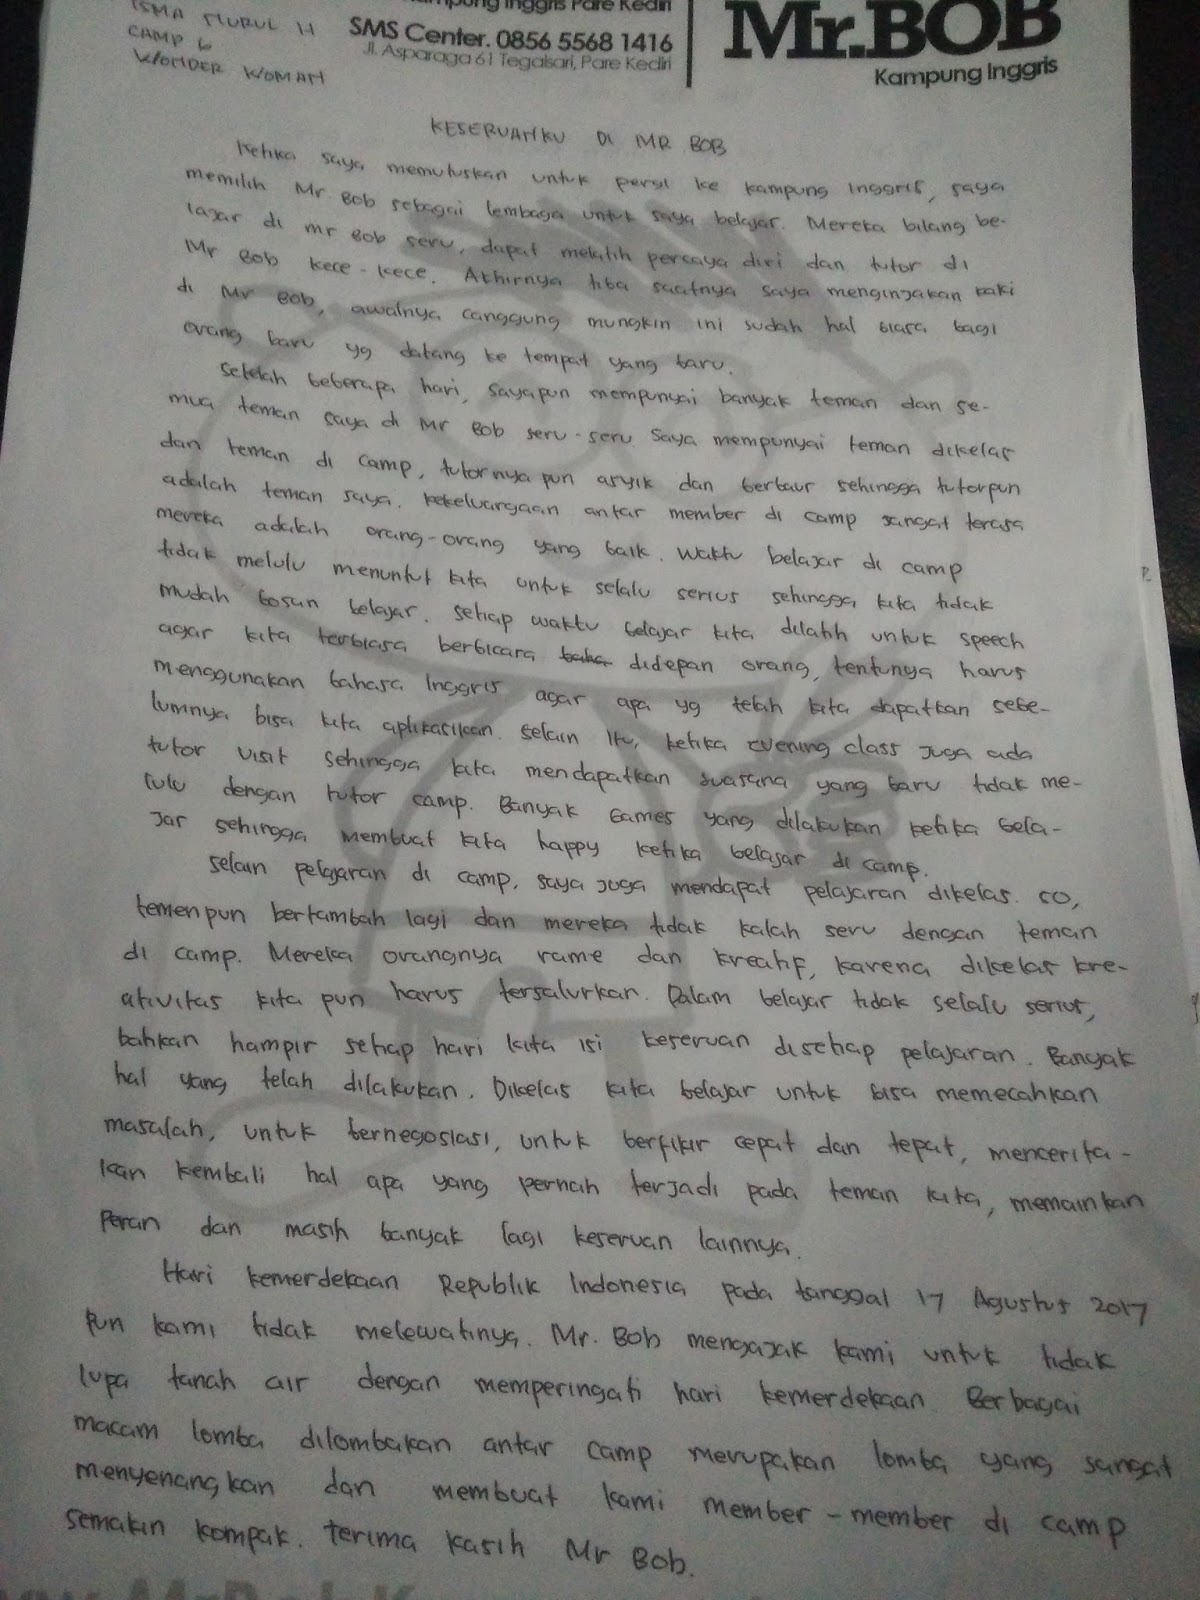 ISMA NURUL H
CAMP 6
WONDER WOMAN
Kampung Inggris Pare Kediri
SMS Center. 0856 5568 1416
Jl. Asparaga 61 Tegalsari, Pare Kediri
Mr.BOB
Kampung Inggris
KESERUANKU DI MR BOB
Ketika saya memutuskan untuk pergi ke kampung Inggris, saya
memilih Mr. Bob sebagai lembaga untuk saya belajar. Mereka bilang be-
lajar di mr Bob seru, dapat melatih percaya diri dan tutor di
Mr Bob kece-kece. Akhirnya tiba saatnya saya menginjakan kaki
di Mr Bob, awalnya canggung mungkin ini sudah hal biasa bagi
orang baru yg datang ke tempat yang baru.
Setelah beberapa hari, sayapun mempunyai banyak teman dan se-
mua teman saya di Mr Bob seru-seru. Saya mempunyai teman dikelas
dan teman di camp, tutornya pun asyik dan berbaur sehingga tutorpun
adalah teman saya. Kekeluargaan antar member di camp sangat terasa
mereka adalah orang-orang yang baik. Waktu belajar di camp
tidak melulu menuntut kita untuk selalu serius sehingga kita tidak
mudah bosan belajar. Setiap waktu belajar kita dilatih untuk speech
agar kita terbiasa berbicara baha didepan orang, tentunya harus
menggunakan bahasa Inggris agar apa yg telah kita dapatkan sebe-
lumnya bisa kita aplikasikan. Selain itu, ketika evening class juga ada
tutor visit sehingga kita mendapatkan suasana yang baru tidak me-
lulu dengan tutor camp. Banyak Games yang dilakukan ketika bela-
jar sehingga membuat kita happy ketika belajar di camp.
Selain pelajaran di camp, saya juga mendapat pelajaran dikelas. So,
temenpun bertambah lagi dan mereka tidak kalah seru dengan teman
di camp. Mereka orangnya rame dan kreatif, karena dikelas kre-
ativitas kita pun harus tersalurkan. Dalam belajar tidak selalu serius,
bahkan hampir setiap hari kita isi keseruan disetiap pelajaran. Banyak
hal yang telah dilakukan. Dikelas kita belajar untuk bisa memecahkan
masalah, untuk bernegosiasi, untuk berfikir cepat dan tepat, mencerita-
kan kembali hal apa yang pernah terjadi pada teman kita, memainkan
peran dan masih banyak lagi keseruan lainnya.
Hari kemerdekaan Republik Indonesia pada tanggal 17 Agustus 2017
pun kami tidak melewatinya. Mr. Bob mengajak kami untuk tidak
lupa tanah air dengan memperingati hari kemerdekaan. Berbagai
macam lomba dilombakan antar camp merupakan lomba yang sangat
menyenangkan dan membuat kami member-member di camp
semakin kompak. Terima kasih Mr Bob.